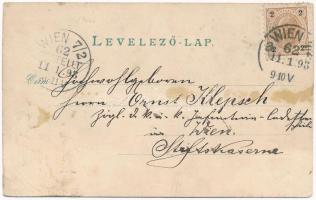 LEVELEZŐ-LAP.
WIEN 7/2
62
11.1.98
2
WIEN
62
11.1.98
9-10V
Hochwohlgeboren
Herrn Ernst Klepsch
Zögl. d. k. u. k. Infanterie-Cadetten
schule
in Wien.
Stiftskaserne